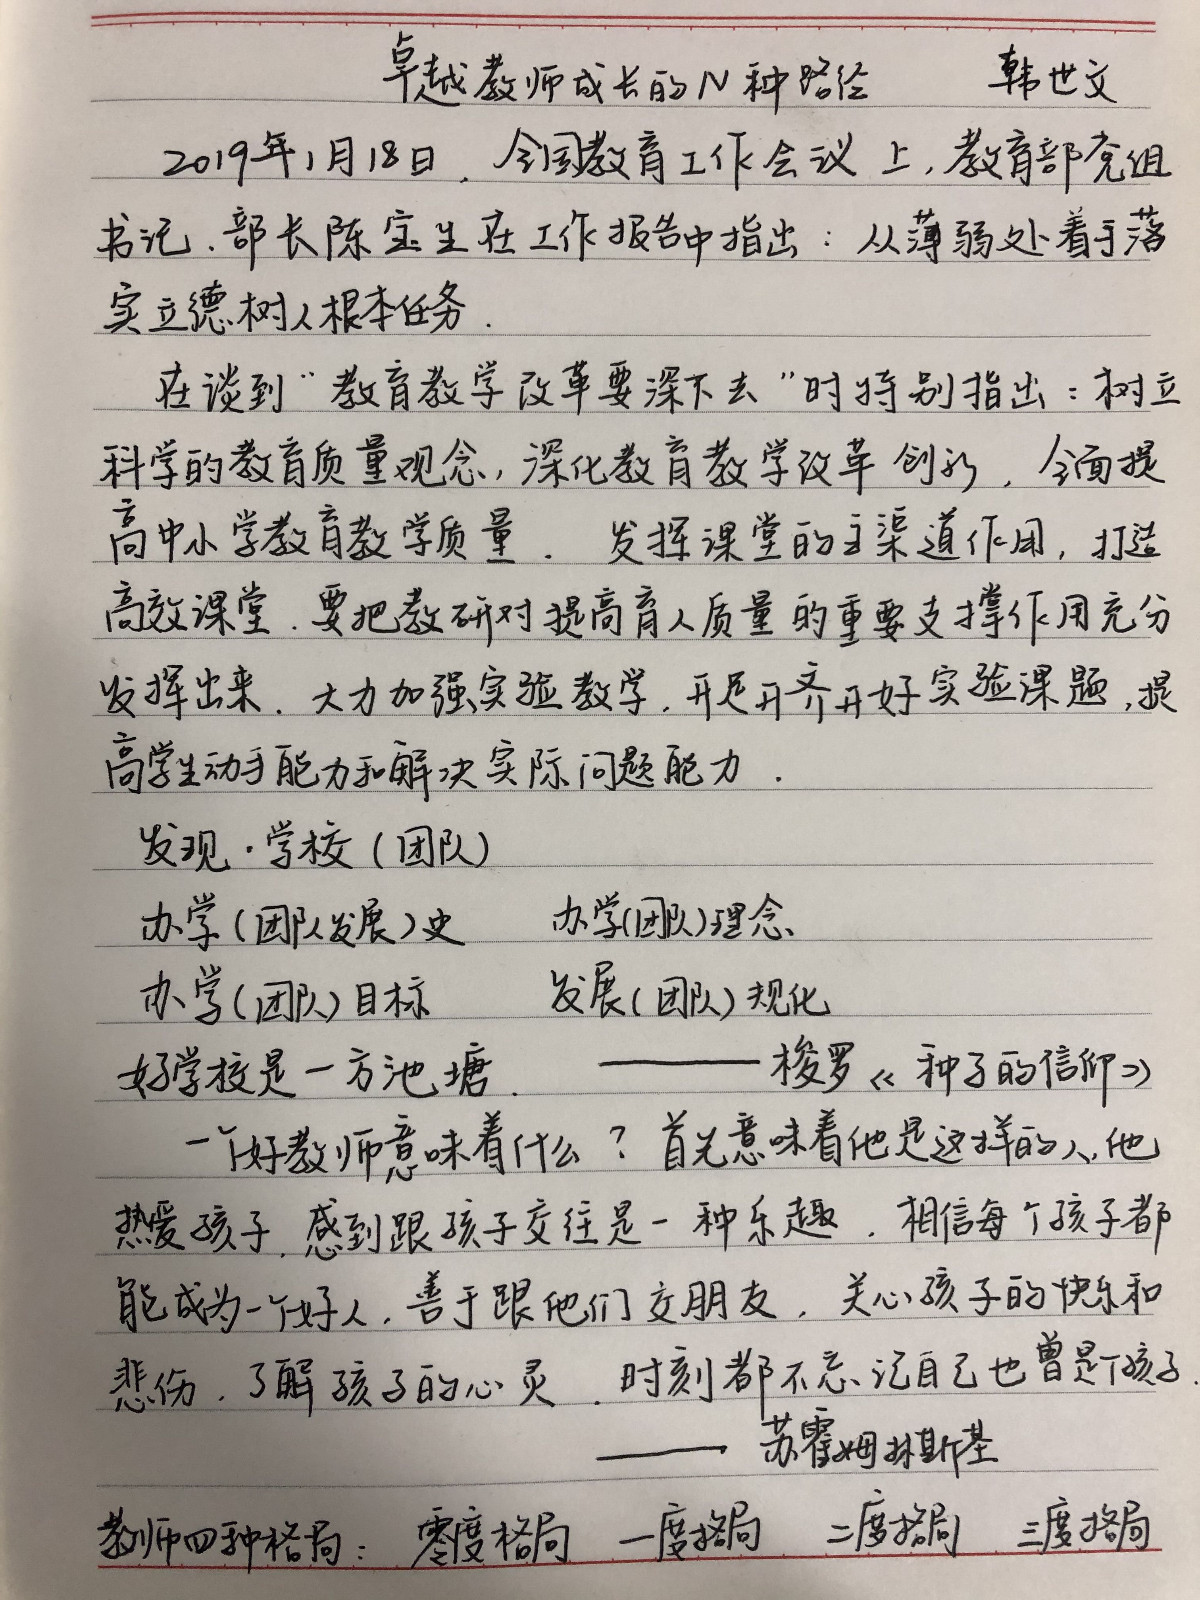 卓越教师成长的N种路径 韩世文
2019年1月18日，全国教育工作会议上，教育部党组
书记、部长陈宝生在工作报告中指出：从薄弱处着手落
实立德树人根本任务．
在谈到“教育教学改革要深下去”时特别指出：树立
科学的教育质量观念，深化教育教学改革创新，全面提
高中小学教育教学质量． 发挥课堂的主渠道作用，打造
高效课堂．要把教研对提高育人质量的重要支撑作用充分
发挥出来．大力加强实验教学，开足开齐开好实验课题，提
高学生动手能力和解决实际问题能力．
发现·学校（团队）
办学（团队发展）史 办学（团队）理念
办学（团队）目标 发展（团队）规化
好学校是一方池塘． ——梭罗《种子的信仰》
一个好教师意味着什么？首先意味着他是这样的人，他
热爱孩子，感到跟孩子交往是一种乐趣，相信每个孩子都
能成为一个好人，善于跟他们交朋友，关心孩子的快乐和
悲伤，了解孩子的心灵，时刻都不忘记自己也曾是个孩子．
——苏霍姆林斯基
教师四种格局：零度格局 一度格局 二度格局 三度格局